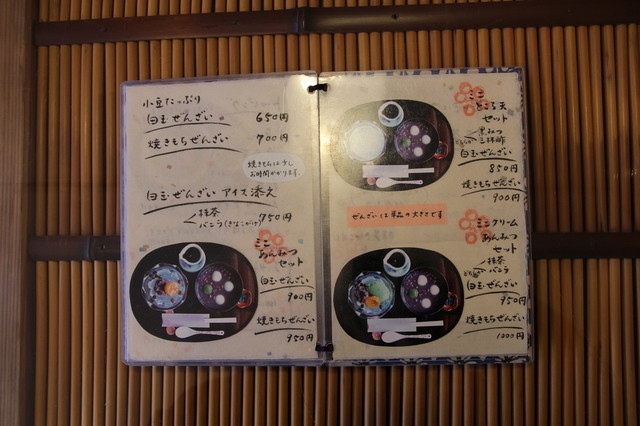 小豆たっぷり
白玉ぜんざい 650円
焼きもちぜんざい 700円
焼きもちは少し
お時間かかります。
白玉ぜんざい アイス添え
抹茶
バニラ(きなこがけ) 750円
ミニ
あんみつ
セット
白玉ぜんざい
900円
焼きもちぜんざい
950円
ミニ
ところ天
セット
黒みつ
三杯酢
どちらか
白玉ぜんざい
850円
焼きもちぜんざい
900円
ぜんざいは単品の大きさです
ミニクリーム
あんみつ
セット
抹茶
バニラ
どちらか
白玉ぜんざい
950円
焼きもちぜんざい
1000円